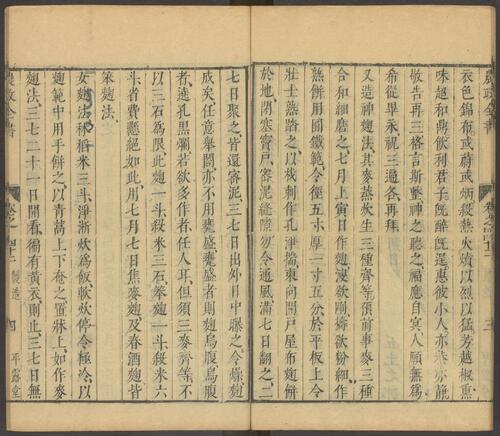 衣色錦布或蔚或炳殺熱火燌以烈以猛芳越椒熏
味超和鼎飲利君子旣醉旣逞惠彼小人亦恭亦靜
敬告再三格言斯整神之聽之福應自冥人願無爲
希從畢永祝三遍各再拜
又造神麴法其麥蒸炊生三種齊等預前事麥三種
合和細磨之七月上寅日作麴溲欲剛擣欲粉細作
熟餅用圓鐵範令徑五寸厚一寸五分於平板上令
壯士熟踏之以杙刺作孔淨掃東向開戸屋布麴餅
於地閉塞窗戸密泥縫隙勿令通風滿七日翻之二
七日聚之皆還密泥三七日出外日中曝之令燥麴
成矣任意舉閣亦不用甕盛甕盛者則麴烏腹烏腹
者遶孔黑爛若欲多作者任人耳但須三麥齊等不
以三石爲限此麴一斗殺米三石笨麴一斗殺米六
斗省費懸絕如此用七月七日焦麥麴及春酒麴皆
笨麴法
女麴法秫稻米三斗淨淅炊爲飯軟炊停令極冷以
麴範中用手餅之以青蒿上下奄之置牀上如作麥
麴法三七二十一日開看徧有黃衣則止三七日無
農政全書
卷之四十二
製造
四
平露堂
三